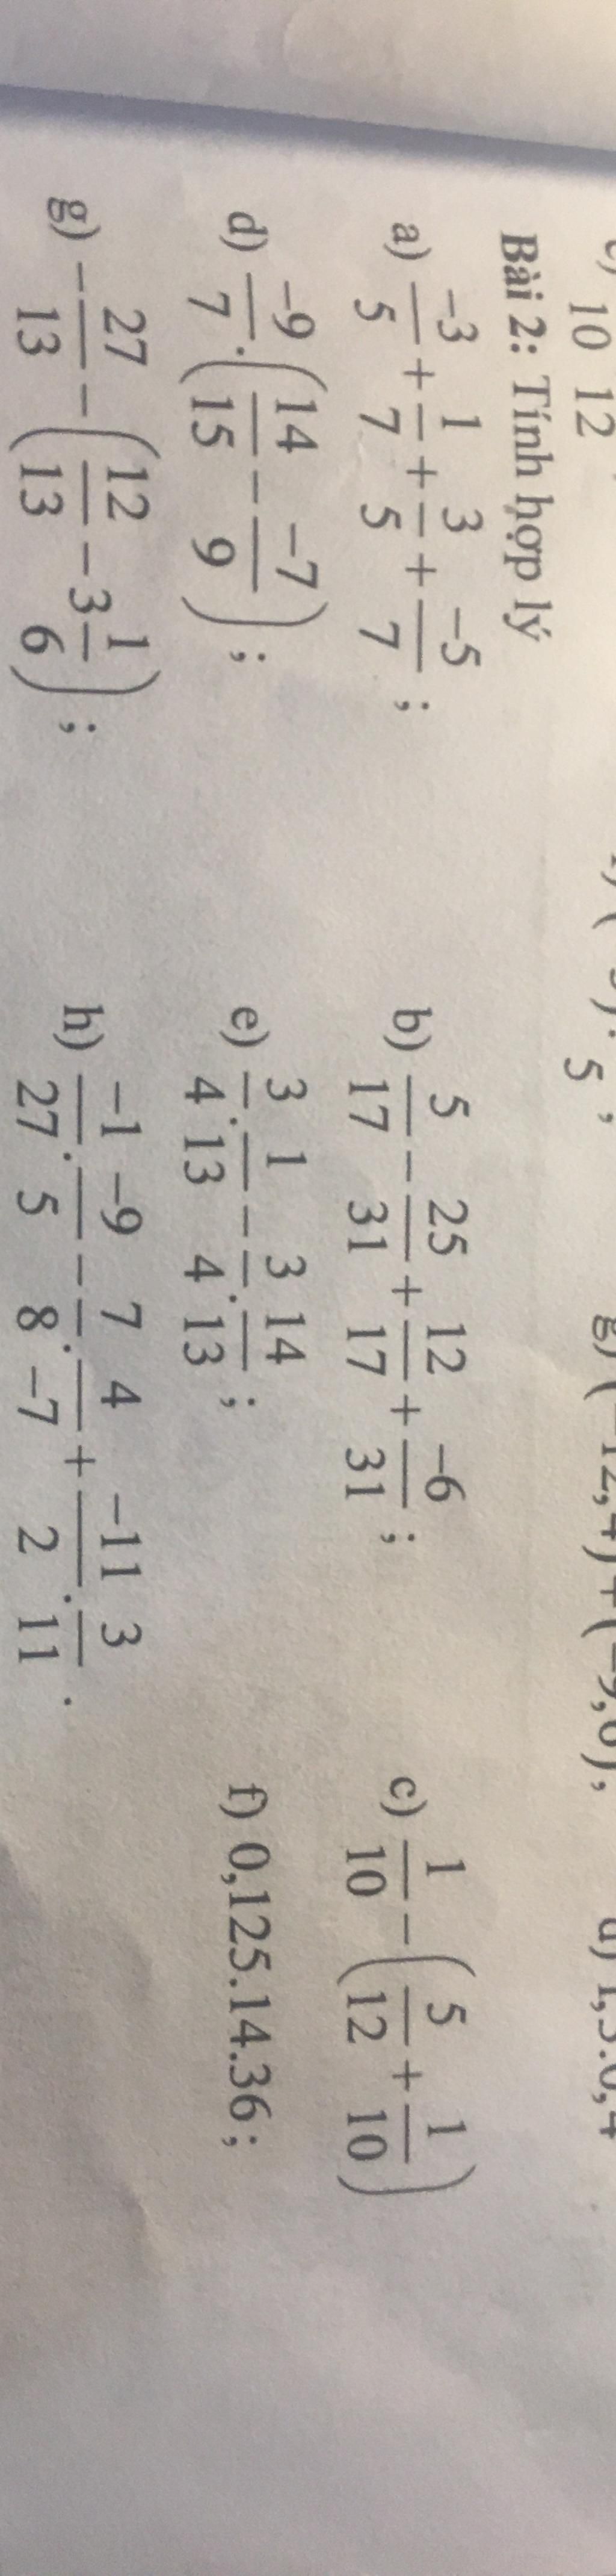 10 12
5 ,
Bài 2: Tính hợp lý
a) -3/5 + 1/7 + 3/5 + -5/7 ; b) 5/17 - 25/31 + 12/17 + -6/31 ; c) 1/10 - (5/12 + 1/10)
d) -9/7 . (14/15 - -7/9) ; e) 3/4 . 1/13 - 3/4 . 14/13 ; f) 0,125.14.36 ;
g) -27/13 - (12/13 - 3 1/6) ; h) -1/27 . -9/5 - 7/8 . 4/-7 + -11/2 . 3/11 .